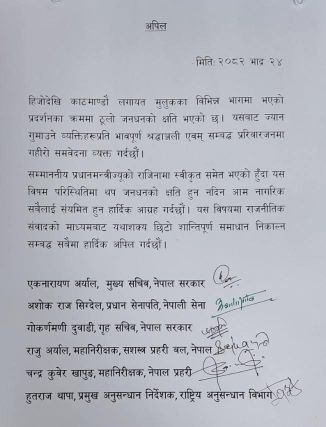 अपिल
मिति: २०८२ भाद्र २४
हिजोदेखि काठमाण्डौ लगायत मुलुकका विभिन्न भागमा भएको
प्रदर्शनका क्रममा ठूलो जनधनको क्षति भएको छ। यसबाट ज्यान
गुमाउने व्यक्तिहरूप्रति भावपूर्ण श्रद्धाञ्जली एवम् सम्वद्ध परिवारजनमा
गहीरो समवेदना व्यक्त गर्दछौं।
सम्माननीय प्रधानमन्त्रीज्यूको राजिनामा स्वीकृत समेत भएको हुँदा यस
विषम परिस्थितिमा थप जनधनको क्षति हुन नदिन आम नागरिक
सबैलाई संयमित हुन हार्दिक आग्रह गर्दछौं। यस विषयमा राजनीतिक
संवादको माध्यमबाट यथाशक्य छिटो शान्तिपूर्ण समाधान निकाल्न
सम्वद्ध सबैमा हार्दिक अपिल गर्दछौं।
एकनारायण अर्याल, मुख्य सचिव, नेपाल सरकार
अशोक राज सिग्देल, प्रधान सेनापति, नेपाली सेना
गोकर्णमणी दुवाडी, गृह सचिव, नेपाल सरकार
राजु अर्याल, महानिरीक्षक, सशस्त्र प्रहरी बल, नेपाल
चन्द्र कुवेर खापुङ, महानिरीक्षक, नेपाल प्रहरी
हुतराज थापा, प्रमुख अनुसन्धान निर्देशक, राष्ट्रिय अनुसन्धान विभाग